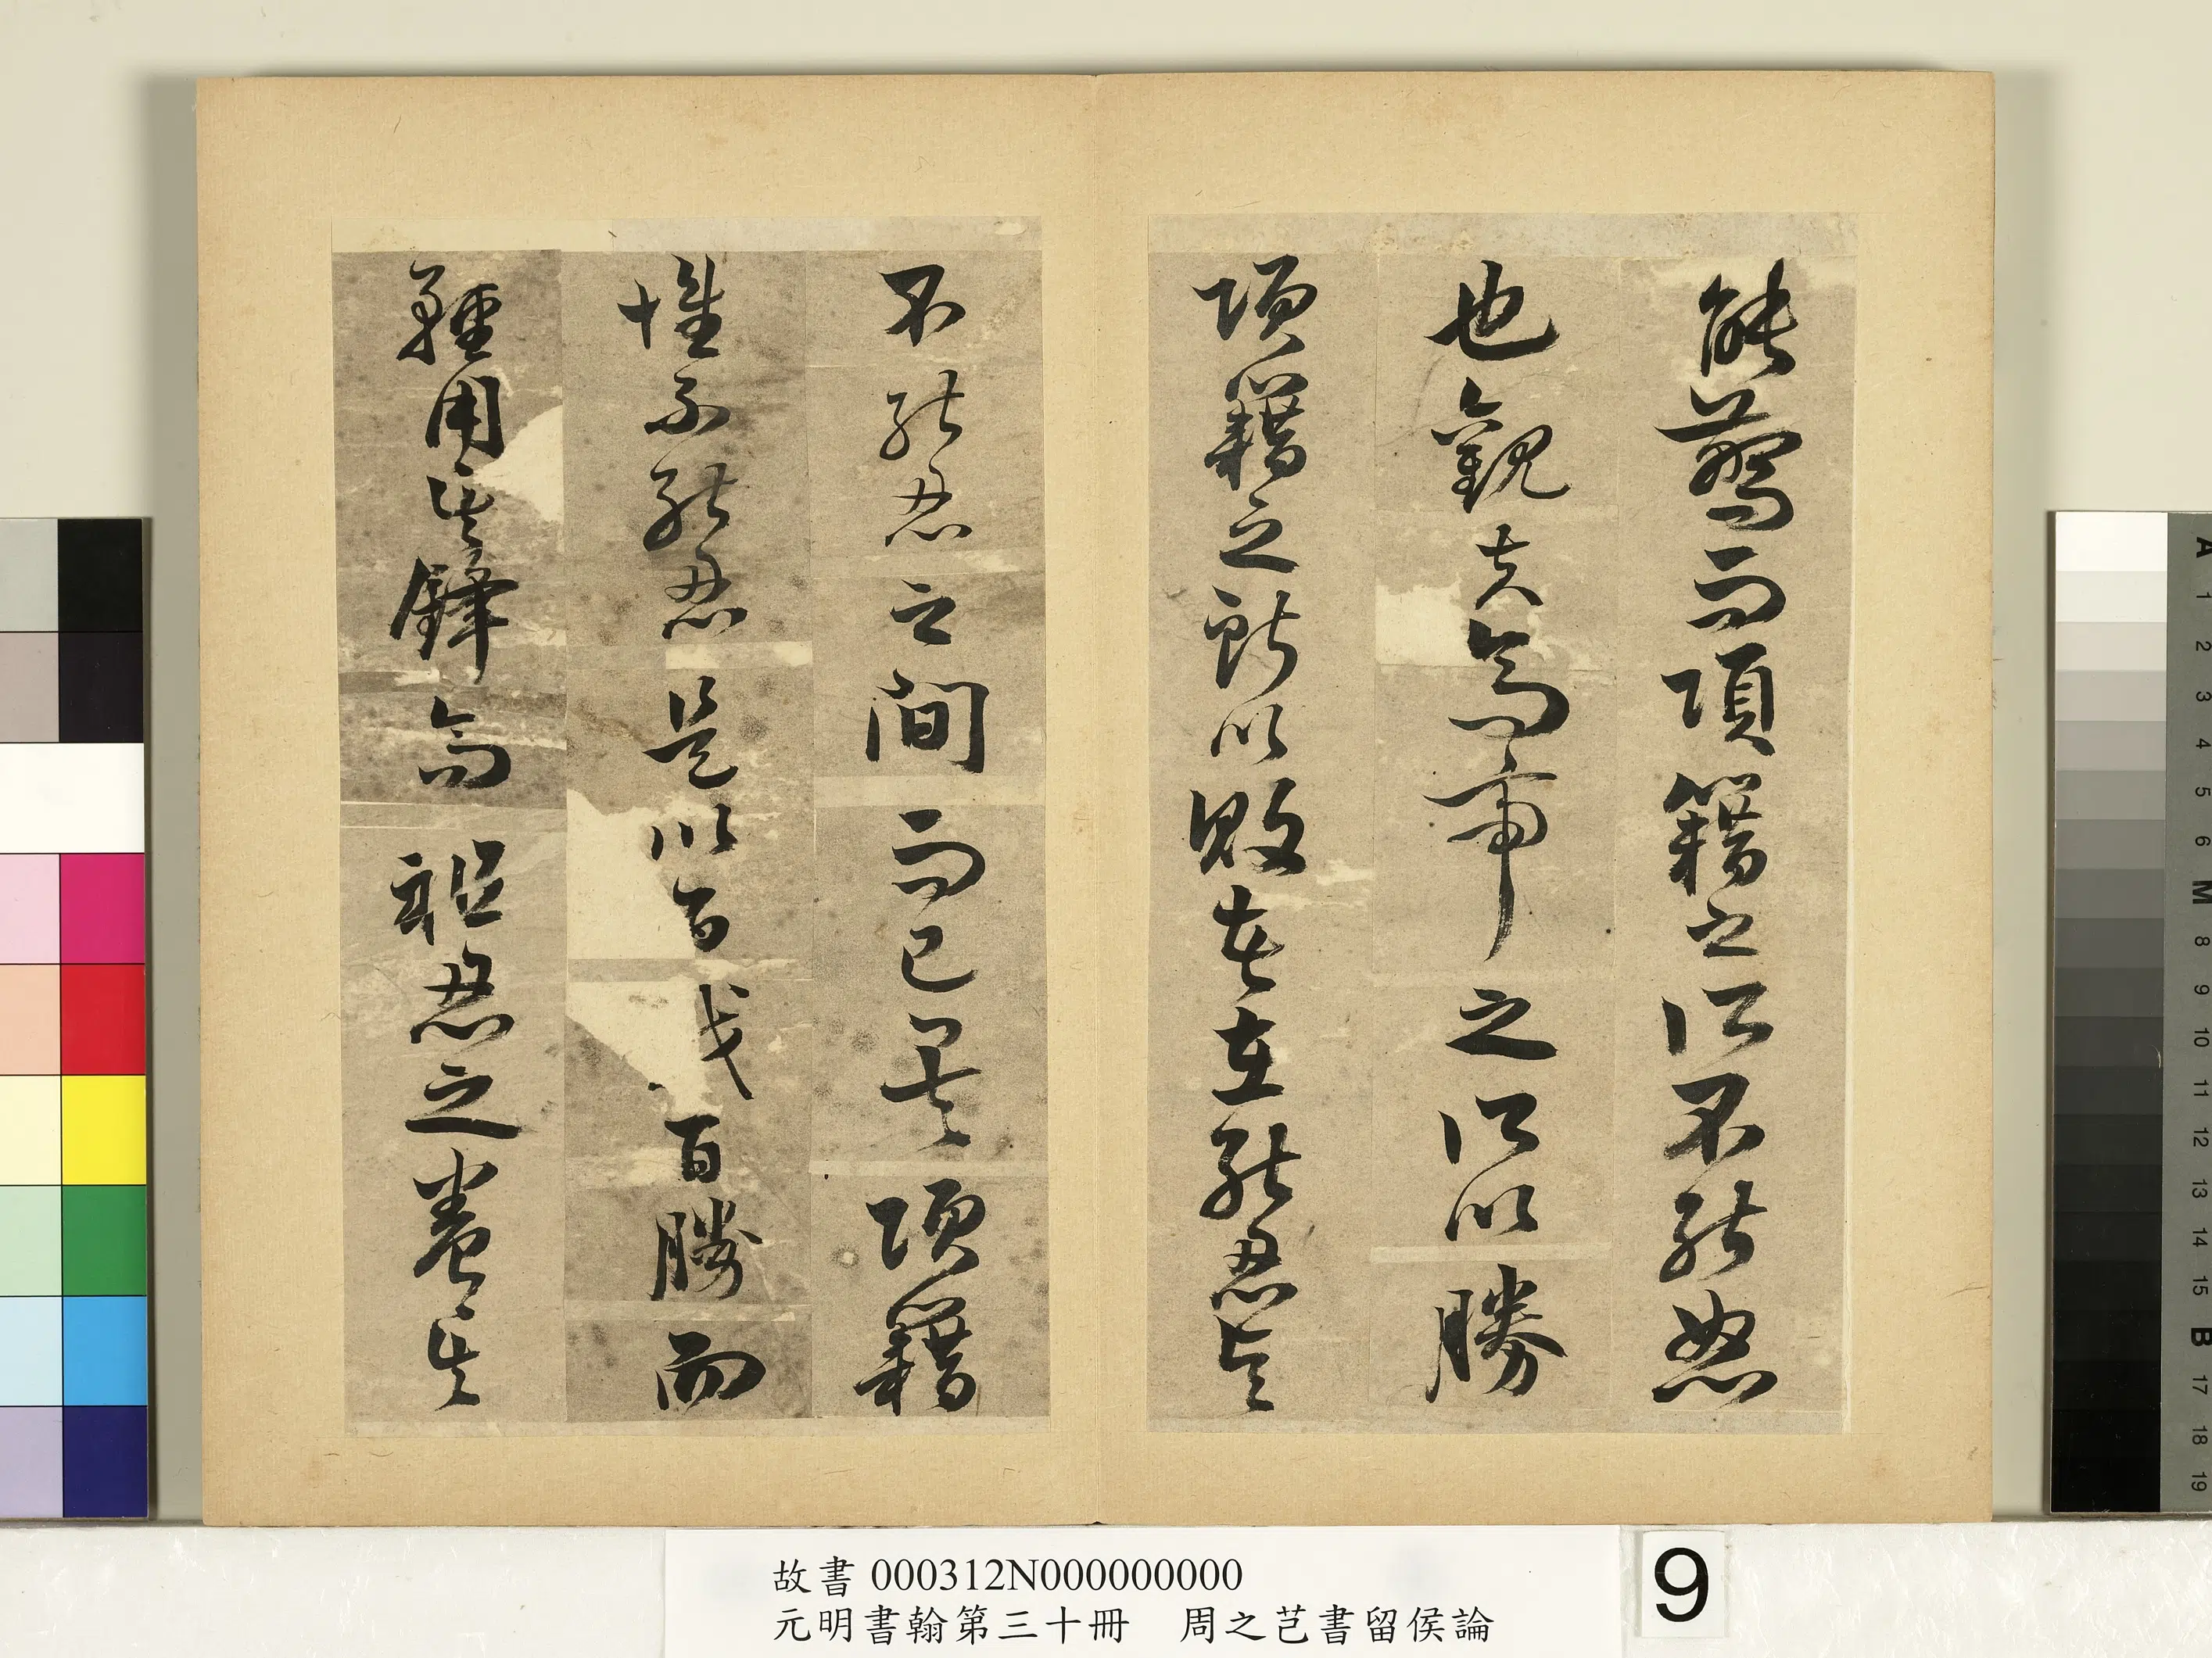 能驚而項籍之所不能怒
也觀夫高帝之所以勝
項籍之所以敗者在能忍與
不能忍之間而已矣項籍
惟不能忍是以百戰百勝而
輕用其鋒高祖忍之養其
故書 000312N000000000
元明書翰第三十冊 周之芑書留侯論
9
A 1 2 3 4 5 6 M 8 9 10 11 12 13 14 15 B 17 18 19